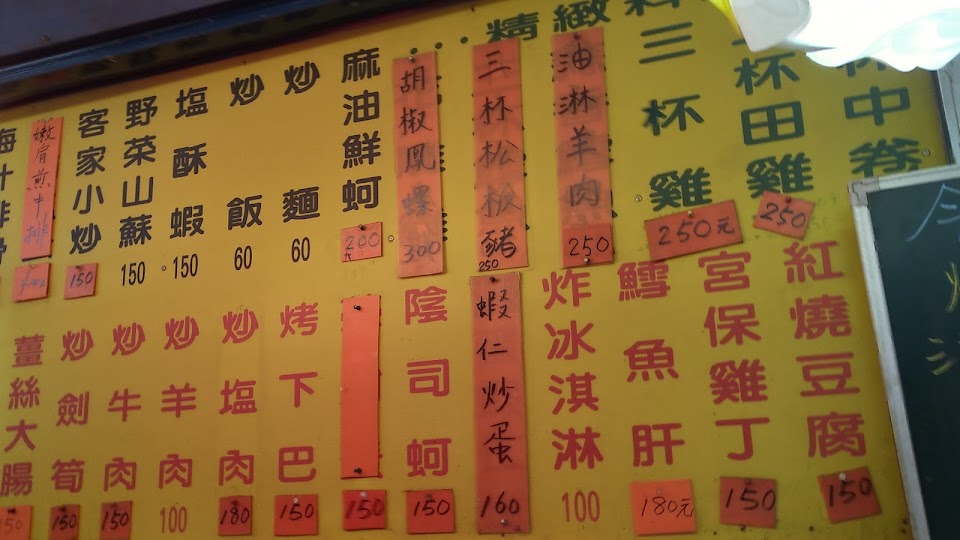 精緻料
中卷
杯田雞
250
三杯雞
250元
油淋羊肉
250
三杯松板豬
250
胡椒鳳螺
300
麻油鮮蚵
200
炒麵
60
炒飯
60
塩酥蝦
150
野菜山蘇
150
客家小炒
150
嫩肩煎中排
紅燒豆腐
150
宮保雞丁
150
鱈魚肝
180元
炸冰淇淋
100
蝦仁炒蛋
160
陰司蚵
150
150
烤下巴
150
炒塩肉
180
炒羊肉
100
炒牛肉
150
炒劍筍
150
薑絲大腸
150
今